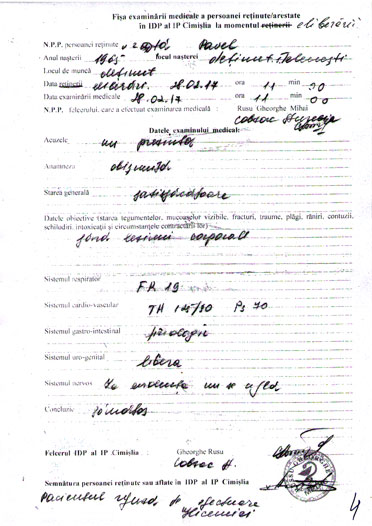 Fișa examinării medicale a persoanei reținute/arestate
în IDP al IP Cimișlia la momentul reținerii eliberării
N.P.P. persoanei reținute Pavel
Anul nașterii 1965 locul nașterei
Locul de muncă deținut
Data reținerii 28.02.17 ora 11 min 30
Data examinării medicale 28.02.17 ora 11 min 00
N.P.P. felcerului, care a efectuat examinarea medicală : Rusu Gheorghe Mihai
Datele examenului medical:
Acuzele nu prezintă
Anamneza
Starea generală satisfăcătoare
Datele obiective (starea segumentelor, mucoaselor vizibile, fracturi, traume, plăgi, răniri, contuzii,
schilodiri, intoxicații și circumstanțele contractării lor)
leziuni corporale
Sistemul respirator FR 19
Sistemul cardio-vascular TA 125/70 Ps 70
Sistemul gastro-intestinal fiziologic
Sistemul uro-genital libera
Sistemul nervos La evidența nu se află
Concluzie sănătos
Felcerul IDP al IP Cimișlia Gheorghe Rusu
Semnătura persoanei reținute sau aflate în IDP al IP Cimișlia
Pacientul refuză
4